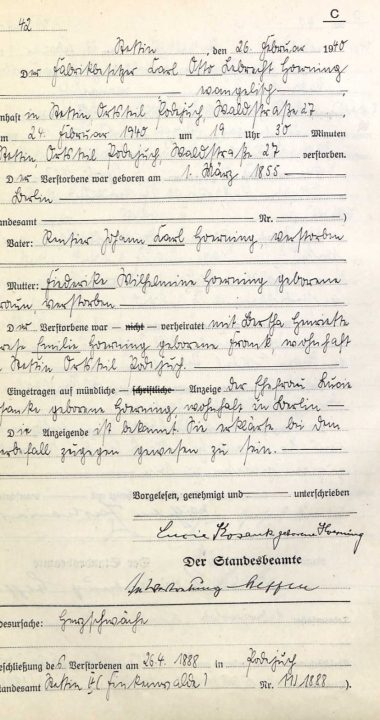 C
42
Stettin, den 26. Februar 1940
Der Fabrikbesitzer Karl Otto Lebrecht Hoerning
evangelisch
wohnhaft in Stettin Ortsteil Podejuch, Waldstraße 27
am 24. Februar 1940 um 19 Uhr 30 Minuten
Stettin, Ortsteil Podejuch, Waldstraße 27 verstorben.
Der Verstorbene war geboren am 1. März 1855
Berlin
Standesamt Nr. )
Vater: Rentier Johann Karl Hoerning, verstorben
Mutter: Friederike Wilhelmine Hoerning geborene
Braun, verstorben
Der Verstorbene war nicht verheiratet mit Bertha Henriette
Emilie Hoerning geborene Frank, wohnhaft
Stettin, Ortsteil Podejuch.
Eingetragen auf mündliche schriftliche Anzeige der Ehefrau Lucie
geborene Hoerning, wohnhaft in Berlin
Die Anzeigende ist bekannt. Sie erklärte bei dem
Sterbefall zugegen gewesen zu sein.
Vorgelesen, genehmigt und unterschrieben
Lucie geborene Hoerning
Der Standesbeamte
In Vertretung
Todesursache: Herzschwäche
Eheschließung des Verstorbenen am 26.4.1888 in Podejuch
Standesamt Stettin (Finkenwalde) Nr. /1888 ).